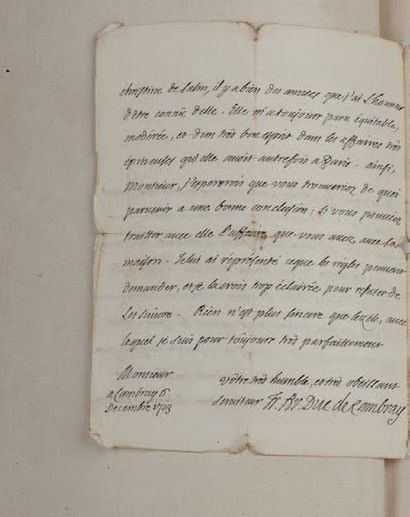 christine de Salm, il y a bien des années que j'ai l'honneur
d'être connu d'elle. Elle m'a toujours paru équitable,
modérée, et d'un très bon esprit dans les affaires très
épineuses qu'elle avoit autrefois a Paris. ainsi,
Monsieur, j'espererois que vous trouveriez de quoi
parvenir a une bonne conclusion, si vous pouviez
traitter avec elle l'affaire que vous avez avec sa
maison. Je lui ai représenté ce que les règles peuvent
demander, et je la crois trop éclairée pour refuser de
les suivre. Rien n'est plus sincere que le zele, avec
lequel je suis pour toujours très parfaittement
Monsieur
a Cambray 6
Decembre 1703
vôtre très humble, et très obeissant
serviteur Fr. Ar. Duc de Cambray